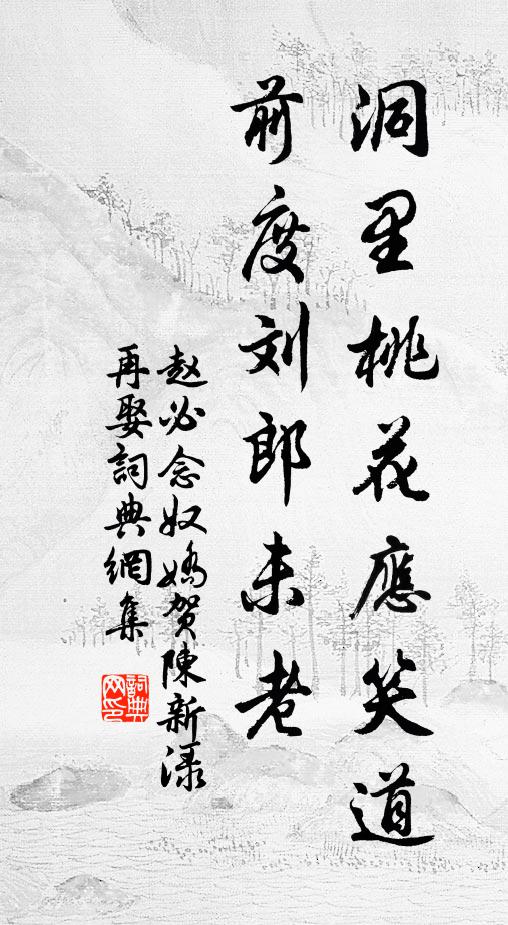 洞里桃花應笑道
前度刘郎未老
赵必念奴嬌賀陳新渌
再娶詞典網集
詞典网印